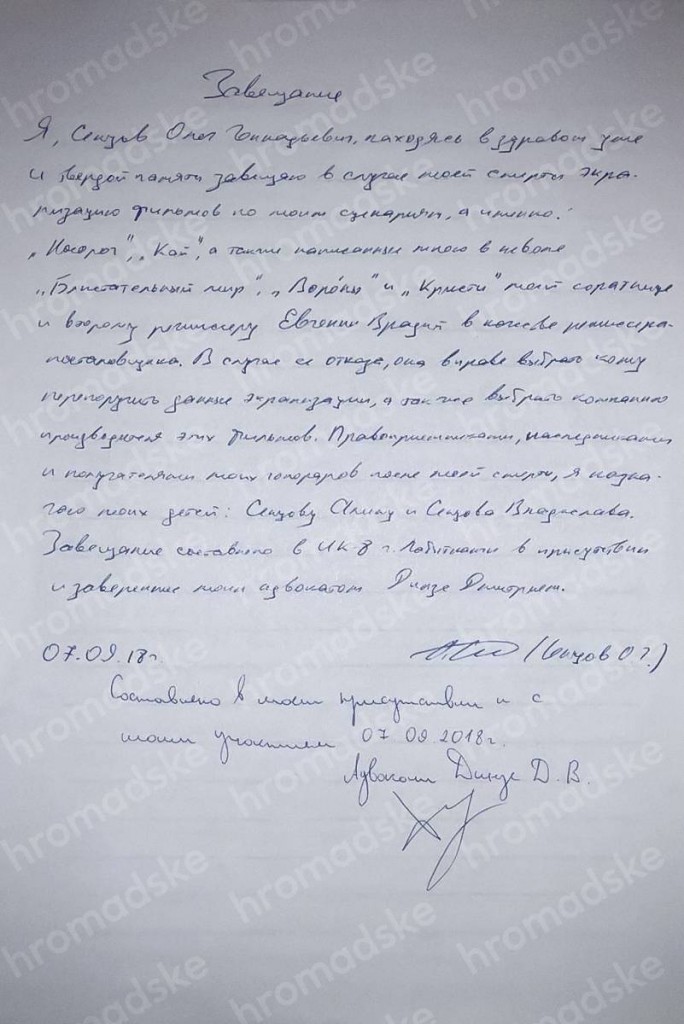 Завещание
Я, Сенцов Олег Геннадьевич, находясь в здравом уме
и твердой памяти завещаю в случае моей смерти экра-
низацию фильмов по моим сценариям, а именно:
„Носорог", „Кай", а также написанные мною в неволе
„Блистательный мир", „Воро́ны" и „Кристи" моей соратнице
и второму режиссеру Евгении Врадий в качестве режиссера-
постановщика. В случае ее отказа, она вправе выбрать кому
перепоручить данные экранизации, а так же выбрать компанию
производителя этих фильмов. Правоприемниками, наследниками
и получателями моих гонораров после моей смерти, я назна-
чаю моих детей: Сенцову Алину и Сенцова Владислава.
Завещание составлено в ИК-8 г. Лабытнанги в присутствии
и заверенное моим адвокатом Динзе Дмитрием.
07.09.18г. (Сенцов О Г.)
Составлено в моем присутствии и с
моим участием 07 09 2018г.
Адвокат Динзе Д. В.
hromadske